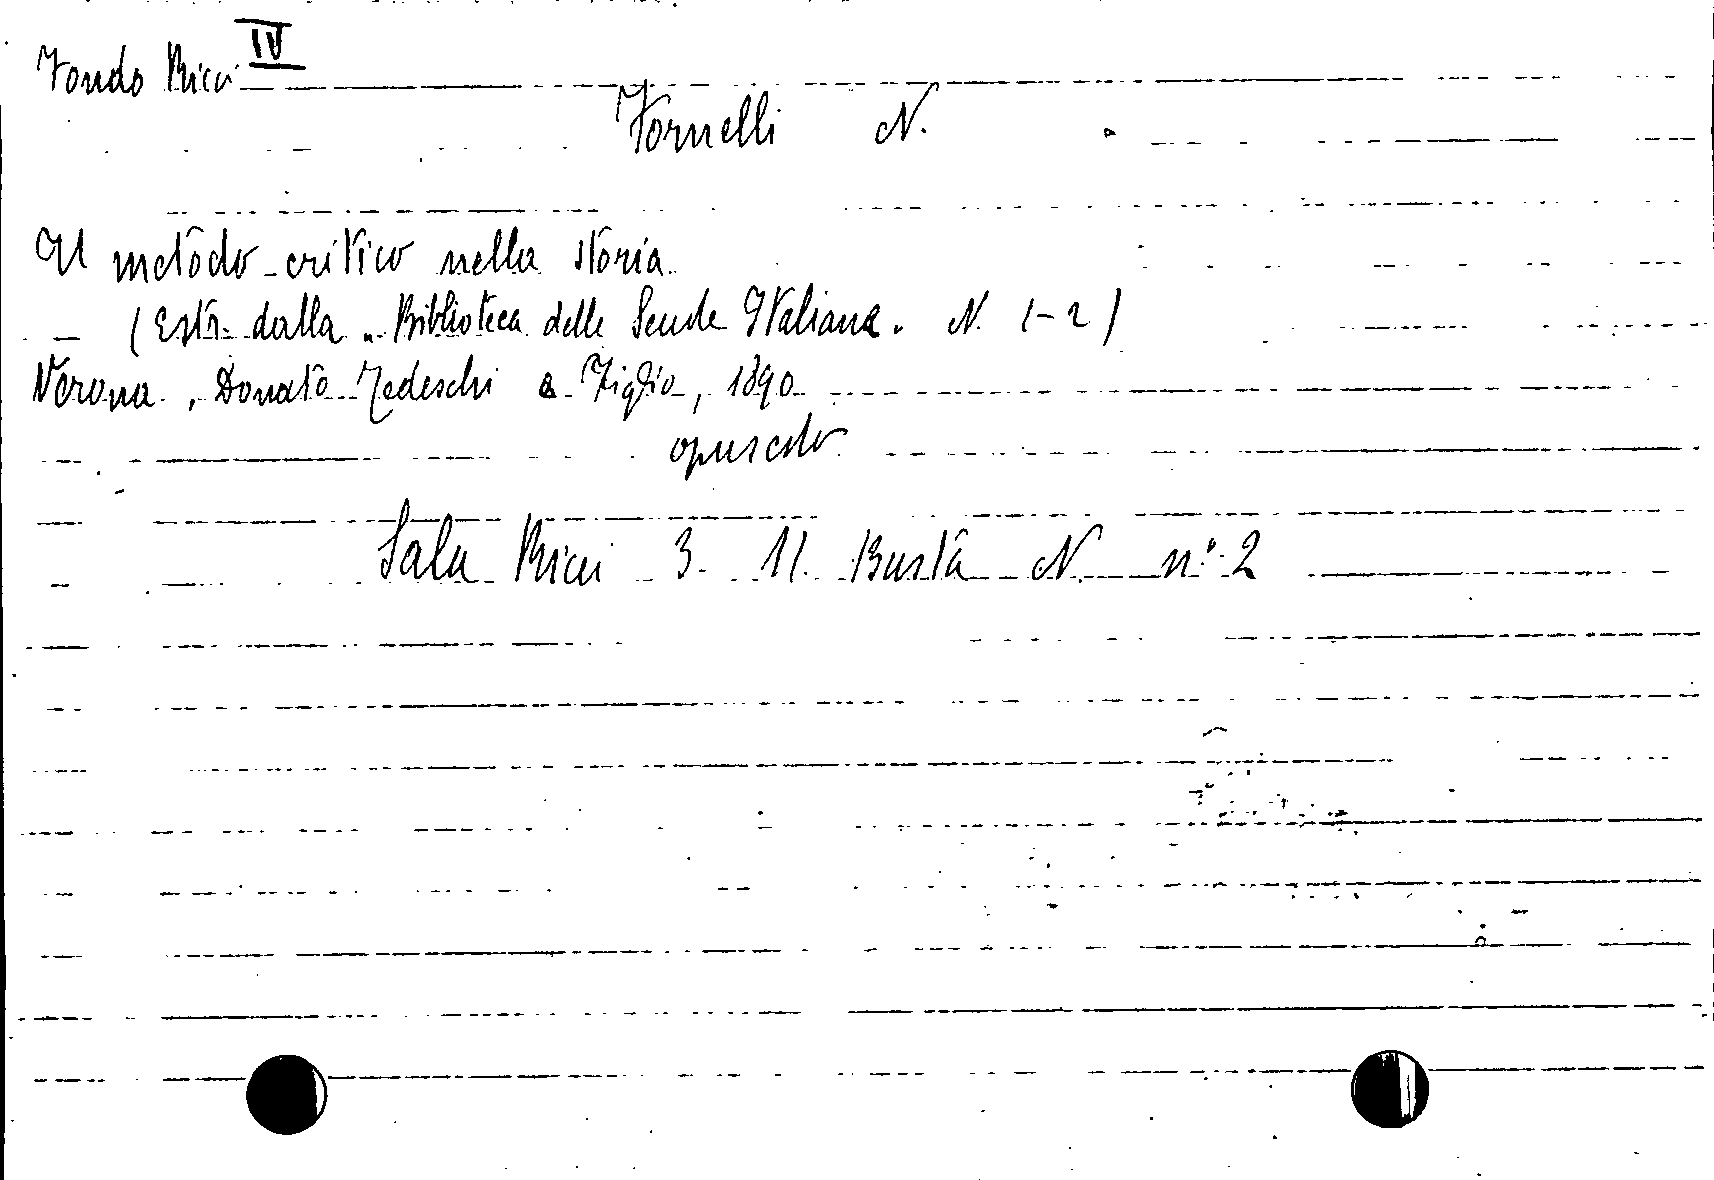 Fondo Ricci IV
Fornelli N.
Il metodo critico nella storia
(Estr. dalla "Biblioteca delle Scuole Italiane. N. 1-2)
Verona, Donato Tedeschi e Figlio, 1890
opuscolo
Sala Ricci 3. 11. Busta N. n° 2